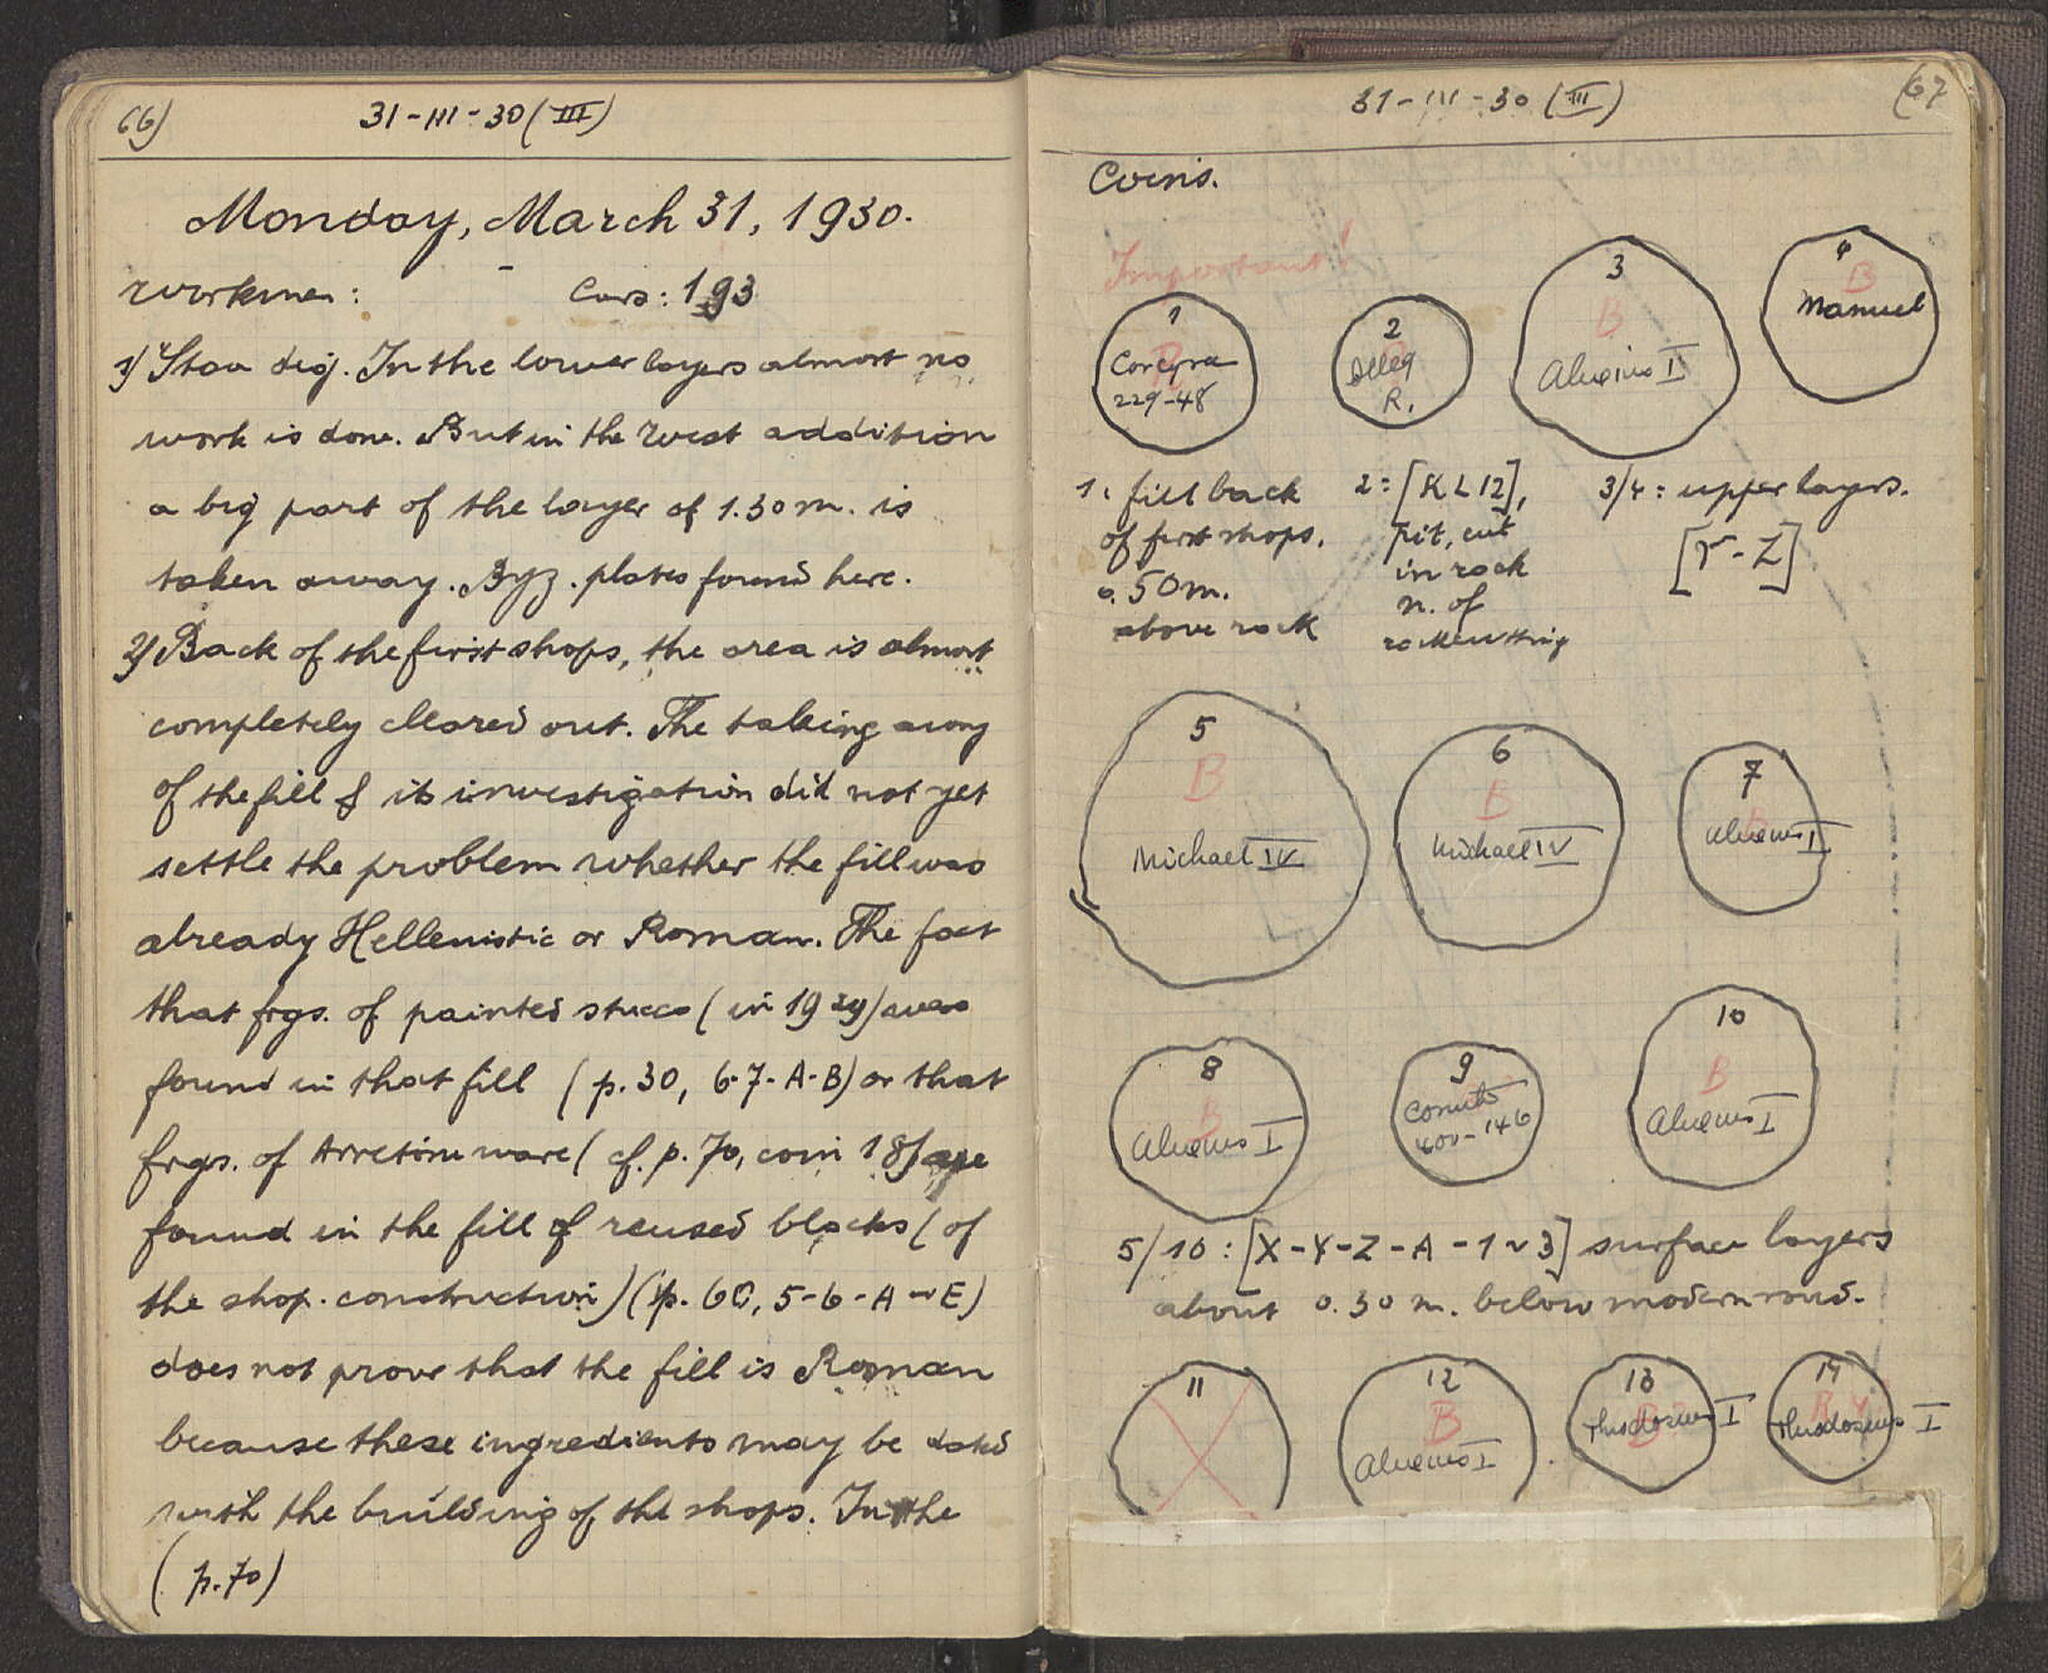 66)
31-III-30 (III)
Monday, March 31, 1930.
Workmen: - Cars: 193
1) Stoa dig. In the lower layers almost no
work is done. But in the West addition
a big part of the layer of 1.30 m. is
taken away. Byz. plates found here.
2) Back of the first shops, the area is almost
completely cleared out. The taking away
of the fill & its investigation did not yet
settle the problem whether the fill was
already Hellenistic or Roman. The fact
that frgs. of painted stucco (in 1929) was
found in that fill (p. 30, 6-7-A-B) or that
frgs. of Arretine ware (cf. p. 70, coin 18) are
found in the fill of reused blocks (of
the shop-construction) (p. 60, 5-6-A-E)
does not prove that the fill is Roman
because these ingredients may be dated
with the building of the shops. In the
(p. 70)
31-III-30 (III)
(67
Coins.
Important!
1
R
Corcyra
229-48
2
Illeg
R.
3
B
Alexius I
4
B
Manuel
1: fill back
of first shops.
0.50 m.
above rock
2: [K L 12],
pit, cut
in rock
n. of
rockcutting
3/4: upper layers.
[Y-Z]
5
B
Michael IV
6
B
Michael IV
7
B
Alexius I
8
B
Alexius I
9
Corinth
400-146
10
B
Alexius I
5/10: [X-Y-Z-A-1~3] surface layers
about 0.30 m. below modern road.
11
12
B
Alexius I
13
B
Theodosius I
14
Theodosius I